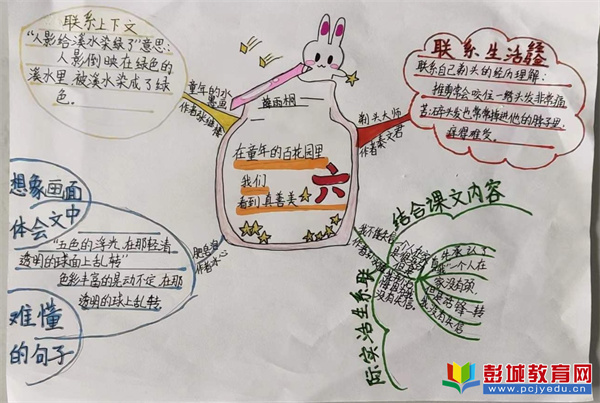 联系上下文
“人影给溪水染绿了”意思:
人影倒映在绿色的
溪水里,被溪水染成了绿
色。
童年的水
墨画
作者张继楼
薛雨桐
在童年的百花园里
我们
看到真善美
六
剃头大师
作者秦文君
联系生活经验
联系自己剃头的经历理解:
推剪常会咬住一绺头发非常痛
苦;碎头发也常常掉进他的脖子里,
痒得难受。
想象画面
体会文中
难懂
的句子
“五色的浮光,在那轻清
透明的球面上乱转”
色彩丰富的是动不定,在那
透明的球上乱转
肥皂泡
作者冰心
我不能失信
结合课文内容
联系生活实际
一个人在
家没有
彭城教育网
www.pcjyedu.cn